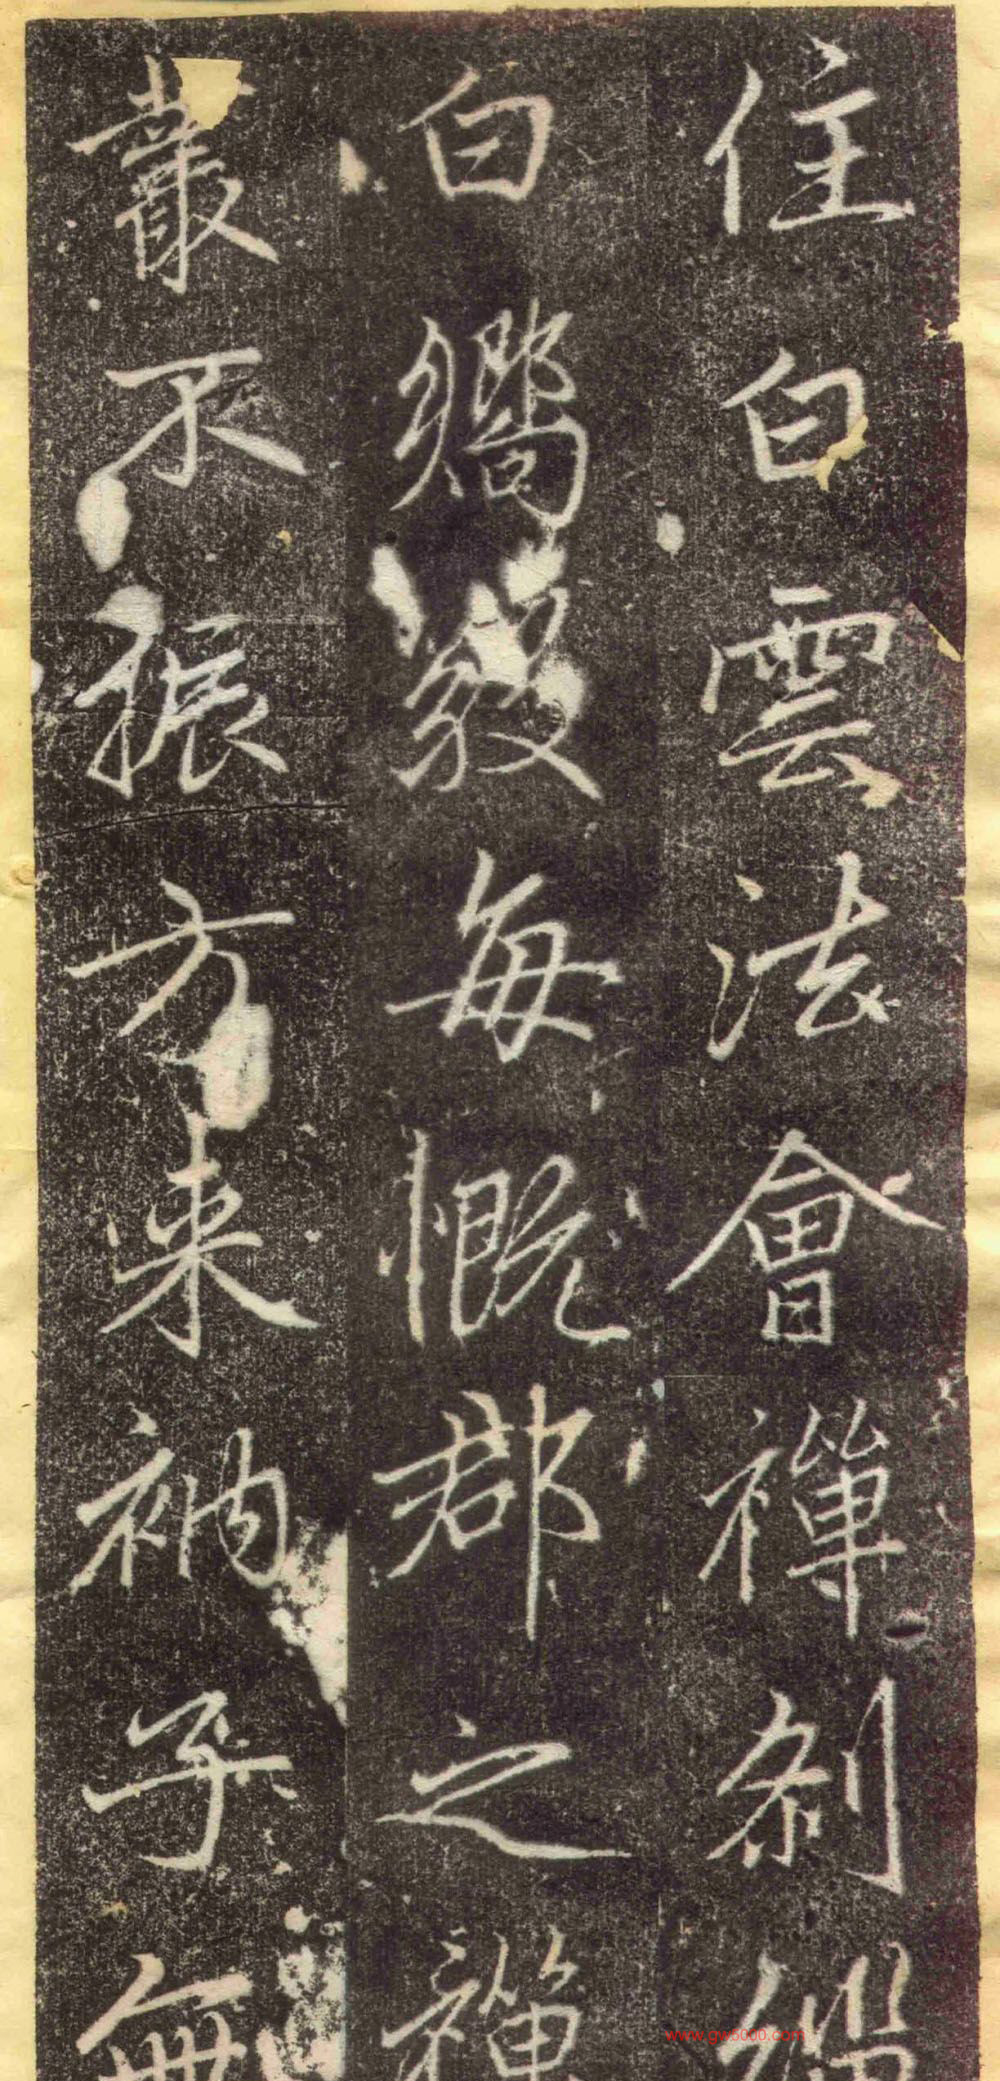 住白雲法會禪刹緇
白嚮每慨郡之禪
叢不振方来衲子無
www.gw5000.com